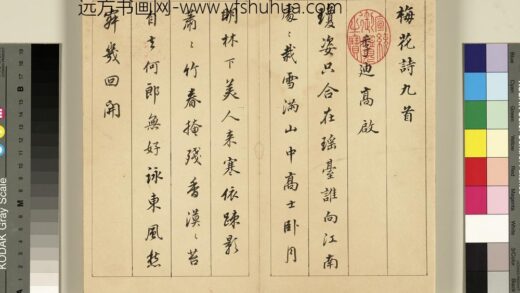 远方书画网-www.yfshuhua.com
梅花詩九首
季迪高啟
瓊姿只合在瑶臺誰向江南
處々栽雪滿山中高士卧月
明林下美人来寒依踈影
蕭々竹春掩殘香漠々苔
自去何郎無好詠東風愁
寂幾回開
KODAK Gray Scale